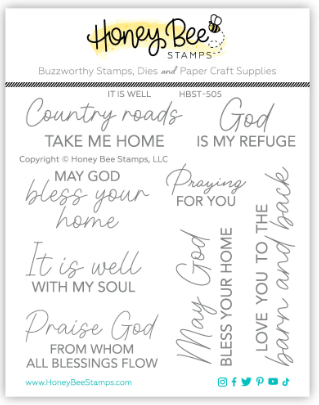 Honey Bee
STAMPS
Buzzworthy Stamps, Dies and Paper Craft Supplies
IT IS WELL HBST-505
Country roads
TAKE ME HOME
God
IS MY REFUGE
Copyright © Honey Bee Stamps, LLC
MAY GOD
bless your
home
Praying
FOR YOU
It is well
WITH MY SOUL
May God
BLESS YOUR HOME
LOVE YOU TO THE
barn and back
Praise God
FROM WHOM
ALL BLESSINGS FLOW
www.HoneyBeeStamps.com